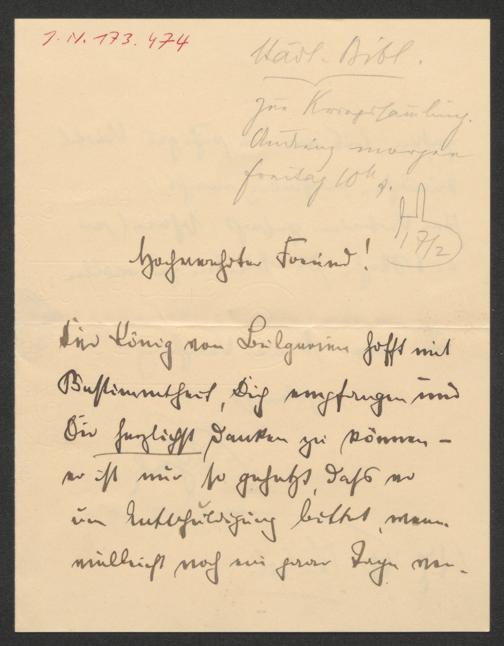 I. N. 173.474
Städt. Bibl.
zur Kriegssammlung.
morgen
Freitag 10h
17/2
Hochverehrter Freund!
Der König von Bulgarien hofft mit
Bestimmtheit, Dich empfangen und
Dir herzlichst danken zu können –
er ist nur so gehetzt, dass er
um Entschuldigung bittet, wenn
vielleicht noch ein paar Tage ver-